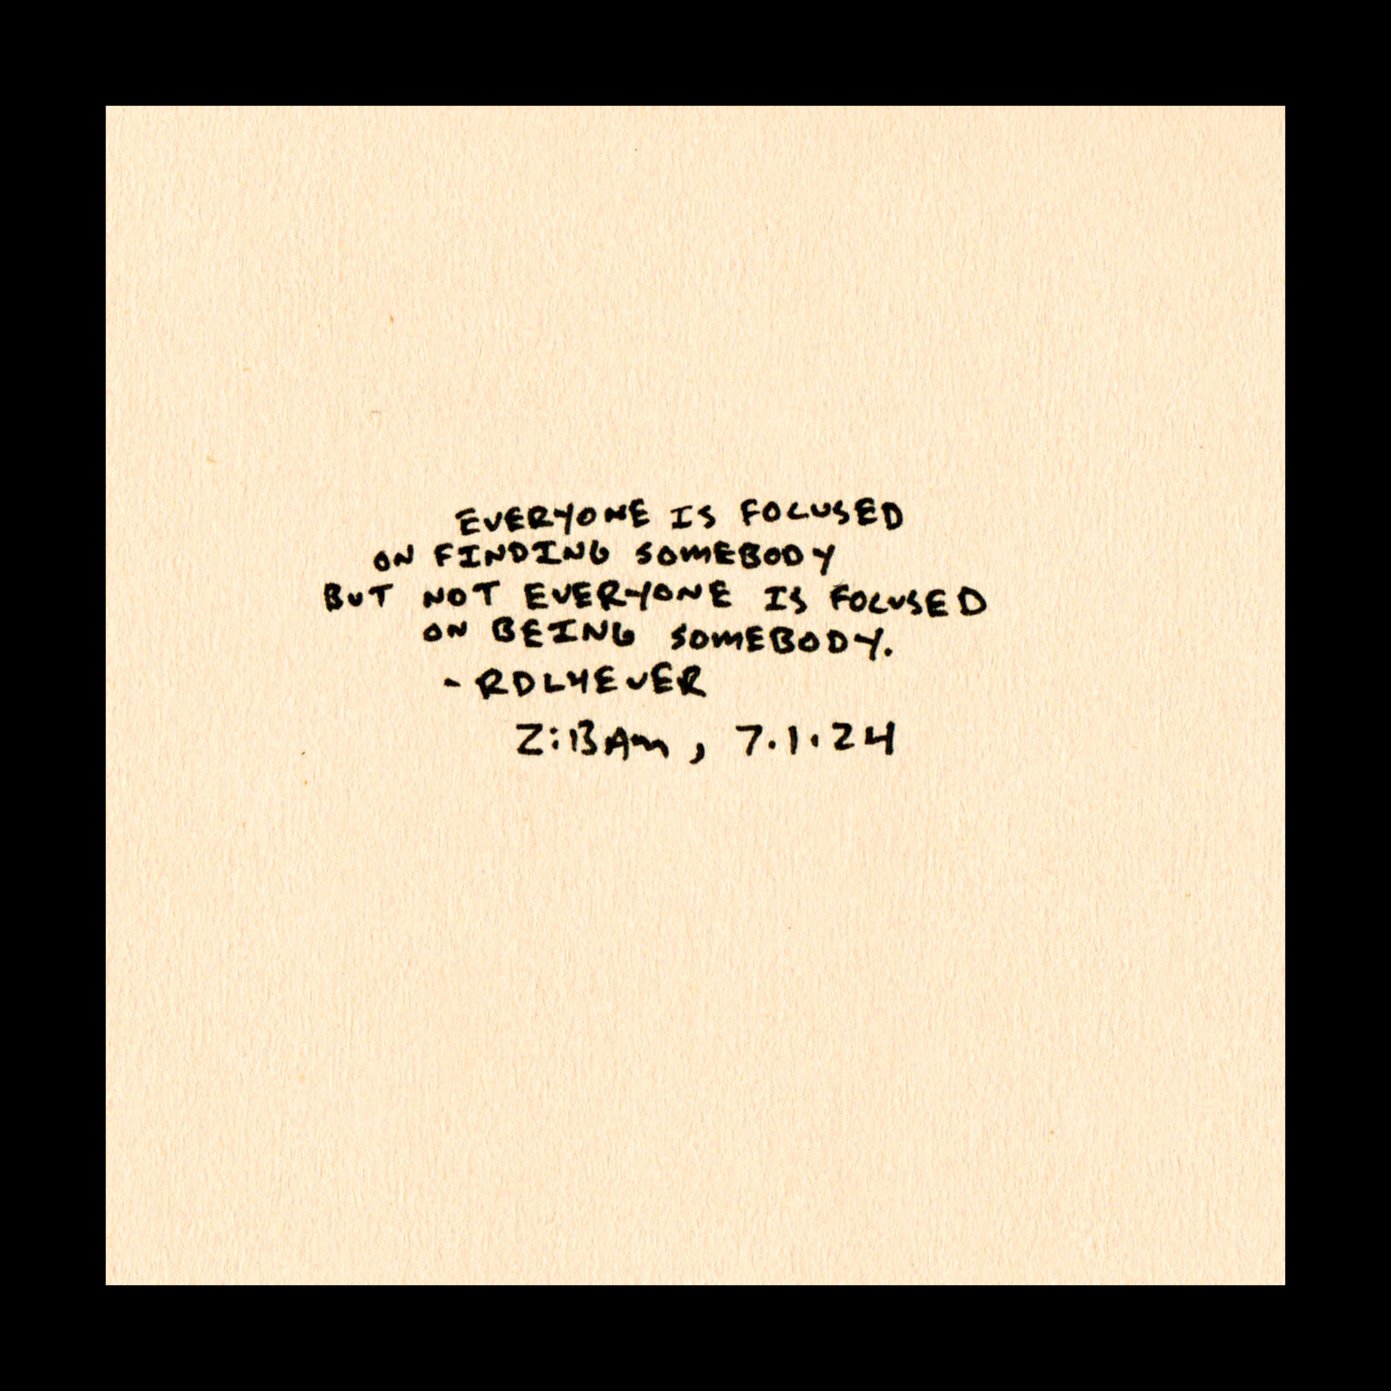 EVERYONE IS FOCUSED
ON FINDING SOMEBODY
BUT NOT EVERYONE IS FOCUSED
ON BEING SOMEBODY.
- RDLYEVER
2:13AM, 7.1.24